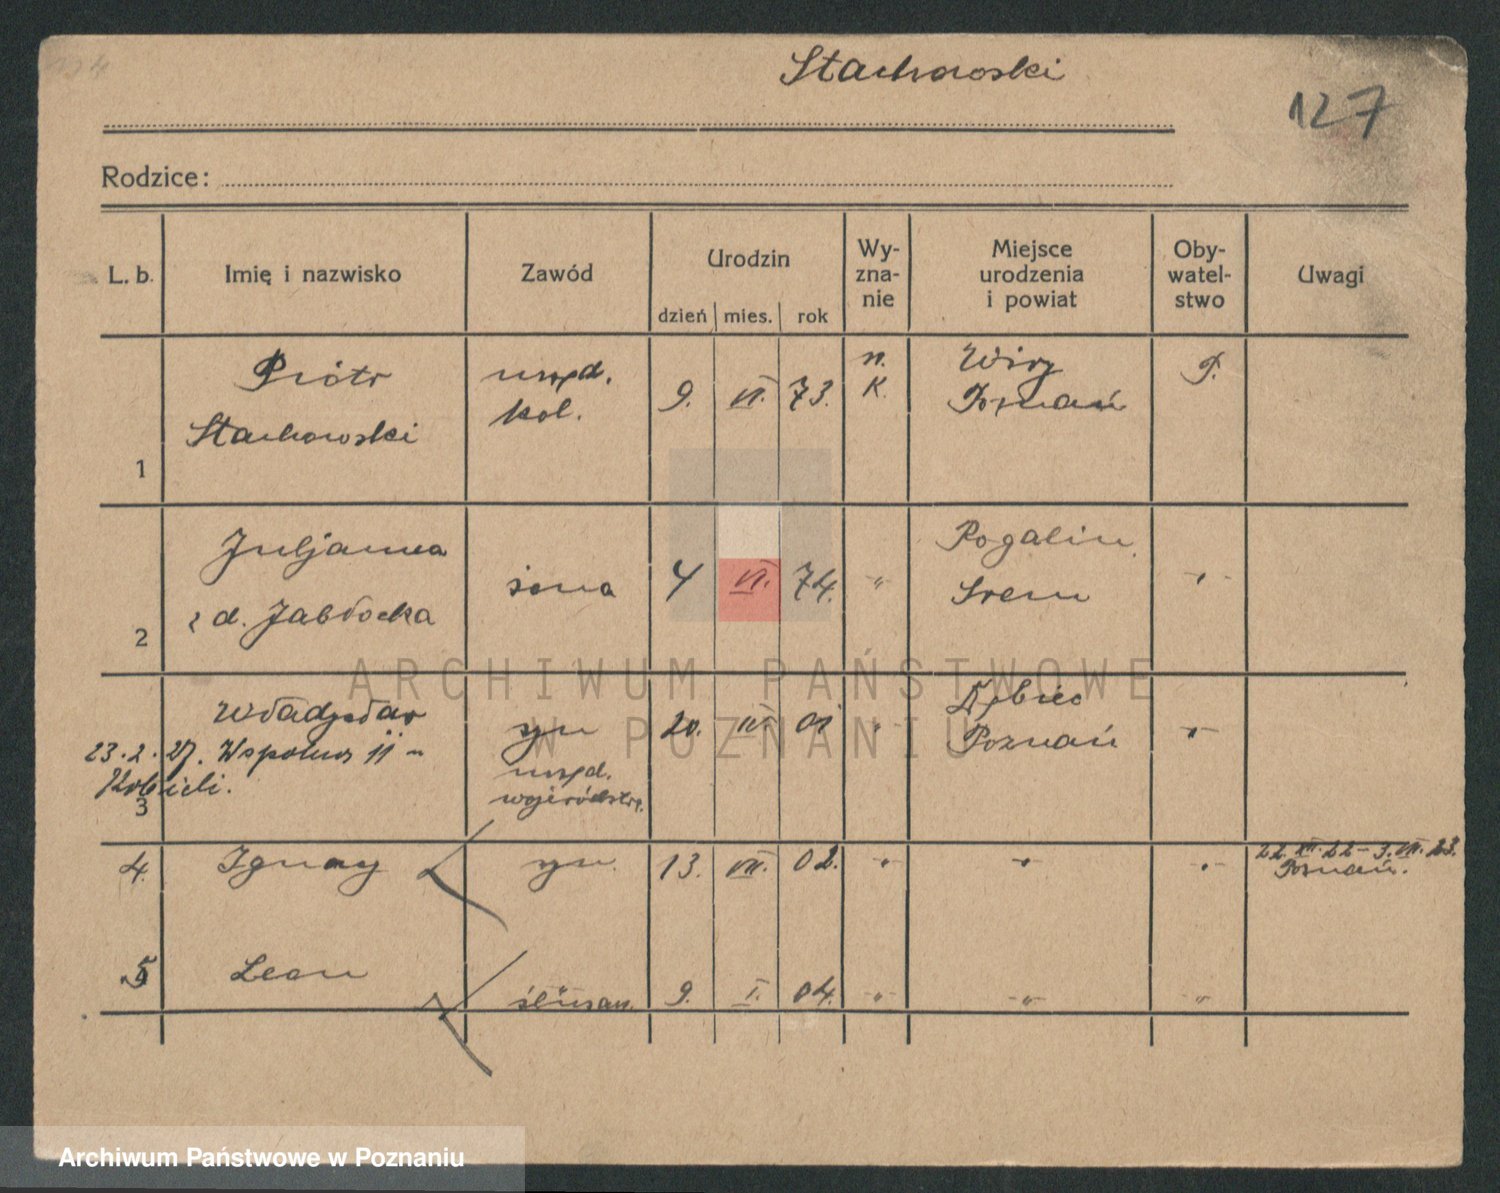 Stachowski
127
Rodzice:
L. b. Imię i nazwisko Zawód Urodzin dzień mies. rok Wy-zna-nie Miejsce urodzenia i powiat Oby-watel-stwo Uwagi
1 Piotr Stachowski urzęd. kol. 9. VI. 73. r. K. Wiry Poznań P.
2 Juljanna z d. Jabłocka żona 4 VI. 74. " Rogalin Srem "
3 Władysław syn 20. 01 " Dębiec Poznań "
23.2.27.
urzęd.
4. Ignacy syn 13. VII. 02. " " " 22. XII. 22 - 3. VII. 23. Poznań.
5 Leon 9. I. 04. " " "
ARCHIWUM PAŃSTWOWE
W POZNANIU
Archiwum Państwowe w Poznaniu